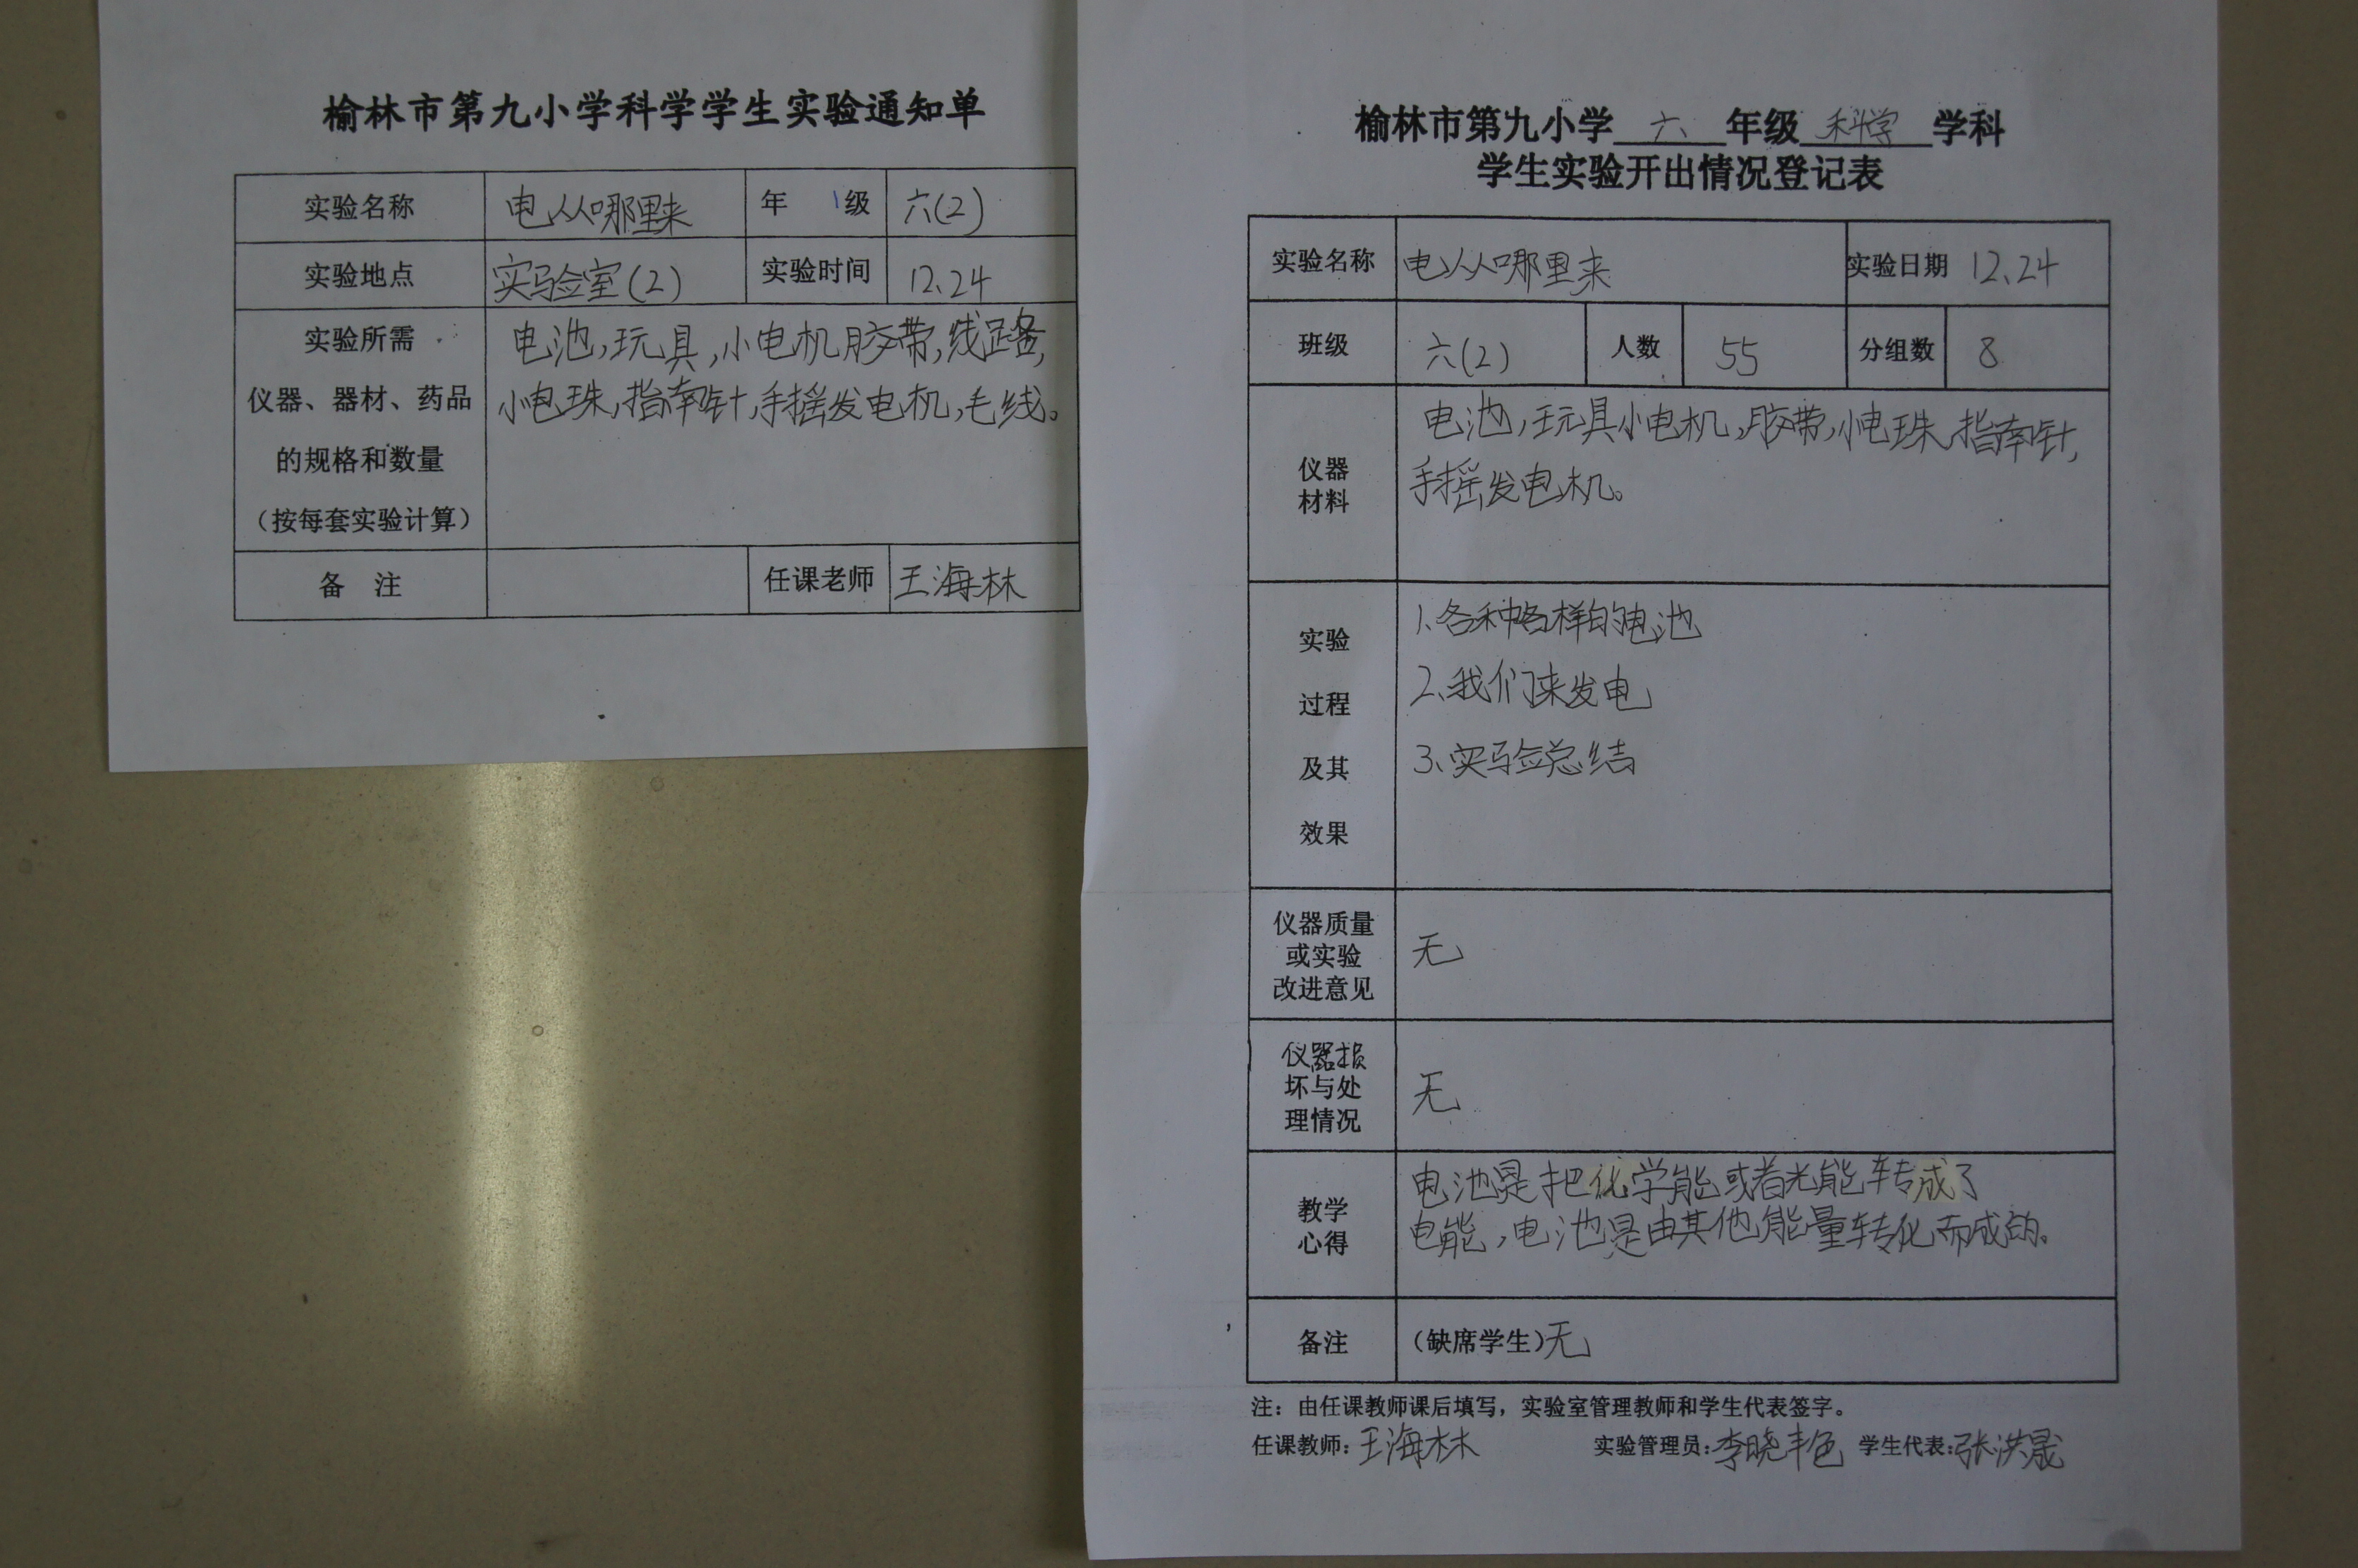 榆林市第九小学科学学生实验通知单
实验名称 电从哪里来 年 级 六(2)
实验地点 实验室(2) 实验时间 12.24
实验所需 电池,玩具,小电机胶带,线路,
仪器、器材、药品 小电珠,指南针,手摇发电机,毛线。
的规格和数量
(按每套实验计算)
备 注 任课老师 王海林
榆林市第九小学 六 年级 科学 学科
学生实验开出情况登记表
实验名称 电从哪里来 实验日期 12.24
班级 六(2) 人数 55 分组数 8
仪器
材料
电池,玩具小电机,胶带,小电珠,指南针,
手摇发电机。
实验
过程
及其
效果
1、各种各样的电池
2、我们来发电
3、实验总结
仪器质量
或实验
改进意见
无
仪器损
坏与处
理情况
无
教学
心得
电池是把化学能或者光能转成了
电能,电池是由其他能量转化而成的。
备注 (缺席学生)无
注:由任课教师课后填写,实验室管理教师和学生代表签字。
任课教师:王海林 实验管理员:李晓艳 学生代表:张洪晟